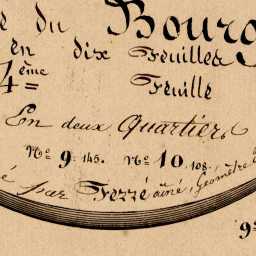 du Bourg
en dix Feuilles
4ème Feuille
En deux Quartiers
Nos 9. 145. No 10. 108.
par Fezzé aîné, Géomètre
9